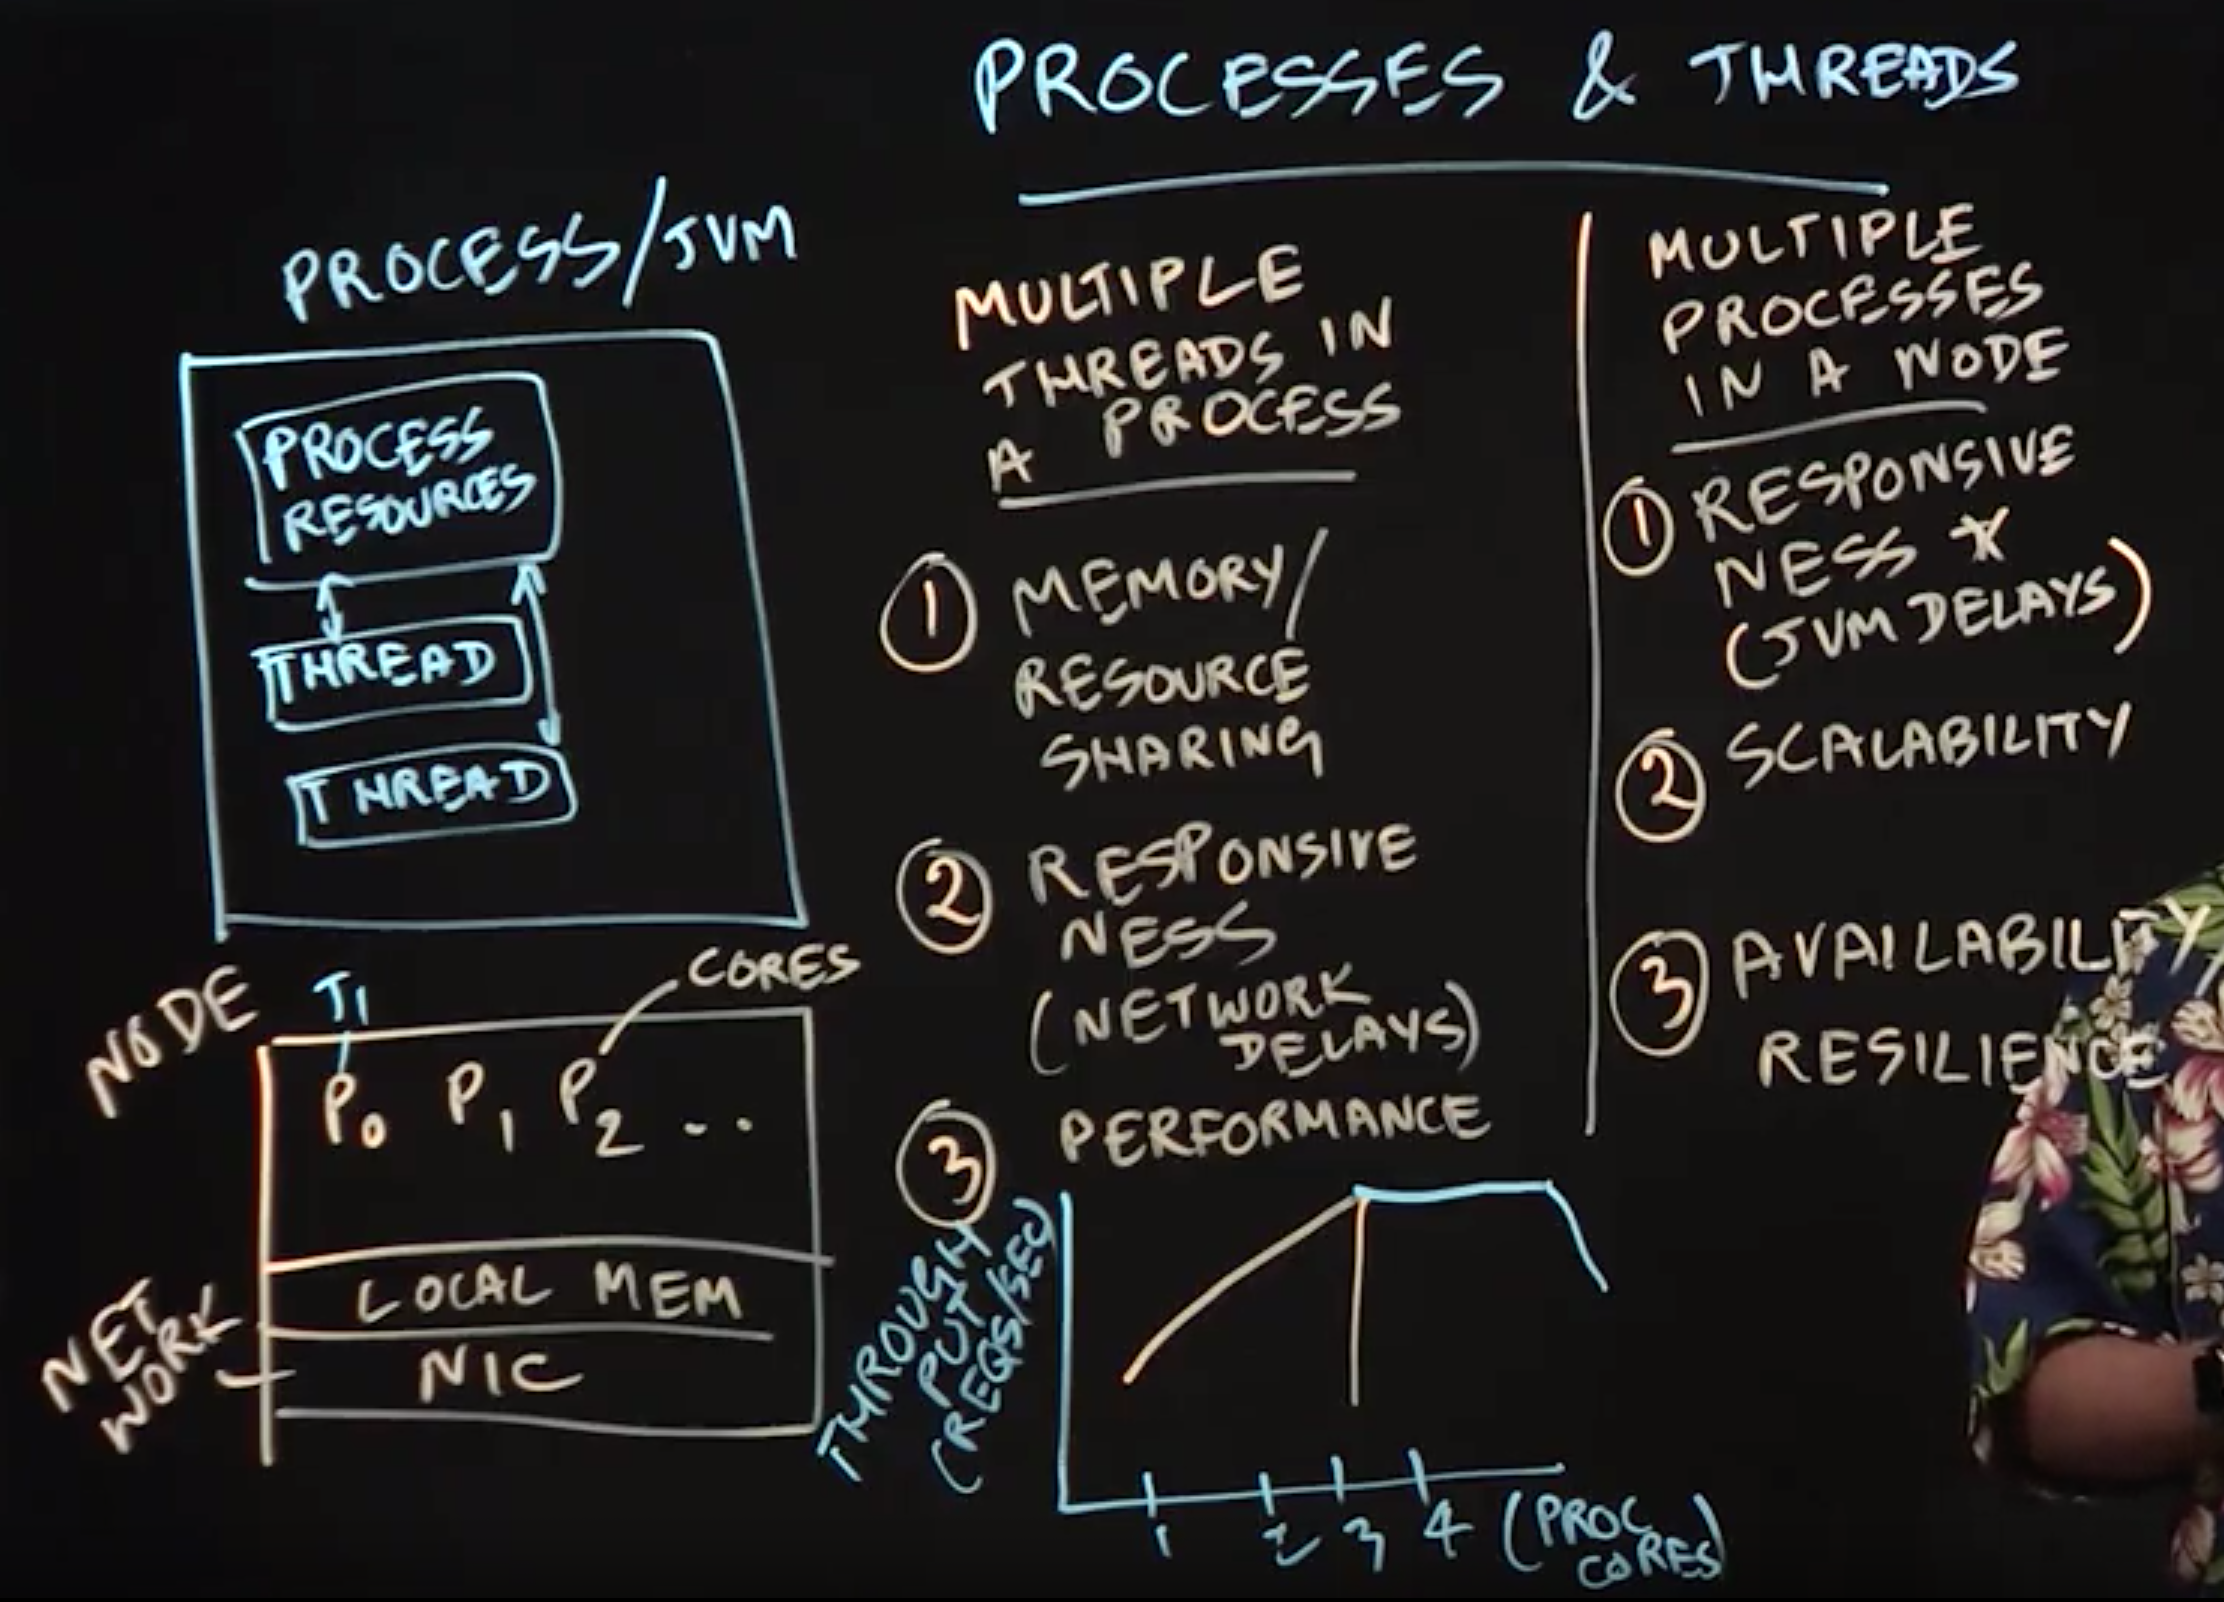 PROCESSES & THREADS
PROCESS/JVM
PROCESS
RESOURCES
THREAD
THREAD
NODE
J1
CORES
P0 P1 P2 ...
LOCAL MEM
NIC
NET
WORK
MULTIPLE
THREADS IN
A PROCESS
1 MEMORY/
RESOURCE
SHARING
2 RESPONSIVE
NESS
(NETWORK
DELAYS)
3 PERFORMANCE
THROUGH
PUT
(REQS/SEC)
1 2 3 4 (PROC
CORES)
MULTIPLE
PROCESSES
IN A NODE
1 RESPONSIVE
NESS *
(JVM DELAYS)
2 SCALABILITY
3 AVAILABILITY/
RESILIENCE